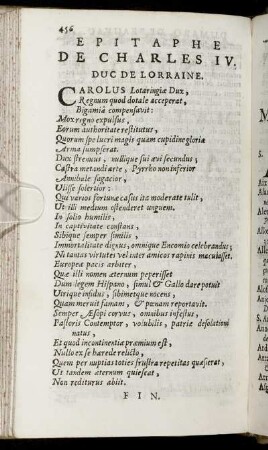 456
EPITAPHE
DE CHARLES IV.
DUC DE LORRAINE.
CAROLUS Lotaringiæ Dux,
Regnum quod dotale acceperat,
Bigamiâ compensavit:
Mox regno expulsus,
Eorum authoritate restitutus,
Quorum spe lucri magis quam cupidine gloriæ
Arma sumpserat.
Dux strenuus, nullique sui ævi secundus;
Castra metandi arte, Pyrrho non inferior
Annibale sagacior,
Ulisse solertior:
Qui varios fortunæ casus ita moderate tulit,
Ut illi medium ostenderet unguem.
In solio humilis,
In captivitate constans;
Sibique semper similis,
Immortalitate dignus, omnique Encomio celebrandus;
Ni tantas virtutes vel inter amicos rapinis maculasset.
Europeæ pacis arbiter,
Quæ illi nomen æternum peperisset
Dum legem Hispano, simul & Gallo dare potuit
Utrique infidus, sibimetque nocens,
Quam meruit famam, & pœnam reportavit.
Semper Æsopi corvus, omnibus infestus,
Pastoris Contemptor, volubilis, patriæ desolationi
natus,
Et quod incontinentiæ præmium est,
Nullo ex se hærede relicto,
Quem per nuptias toties frustra repetitas quæsierat,
Ut tandem æternum quiescat,
Non rediturus abiit.
FIN.